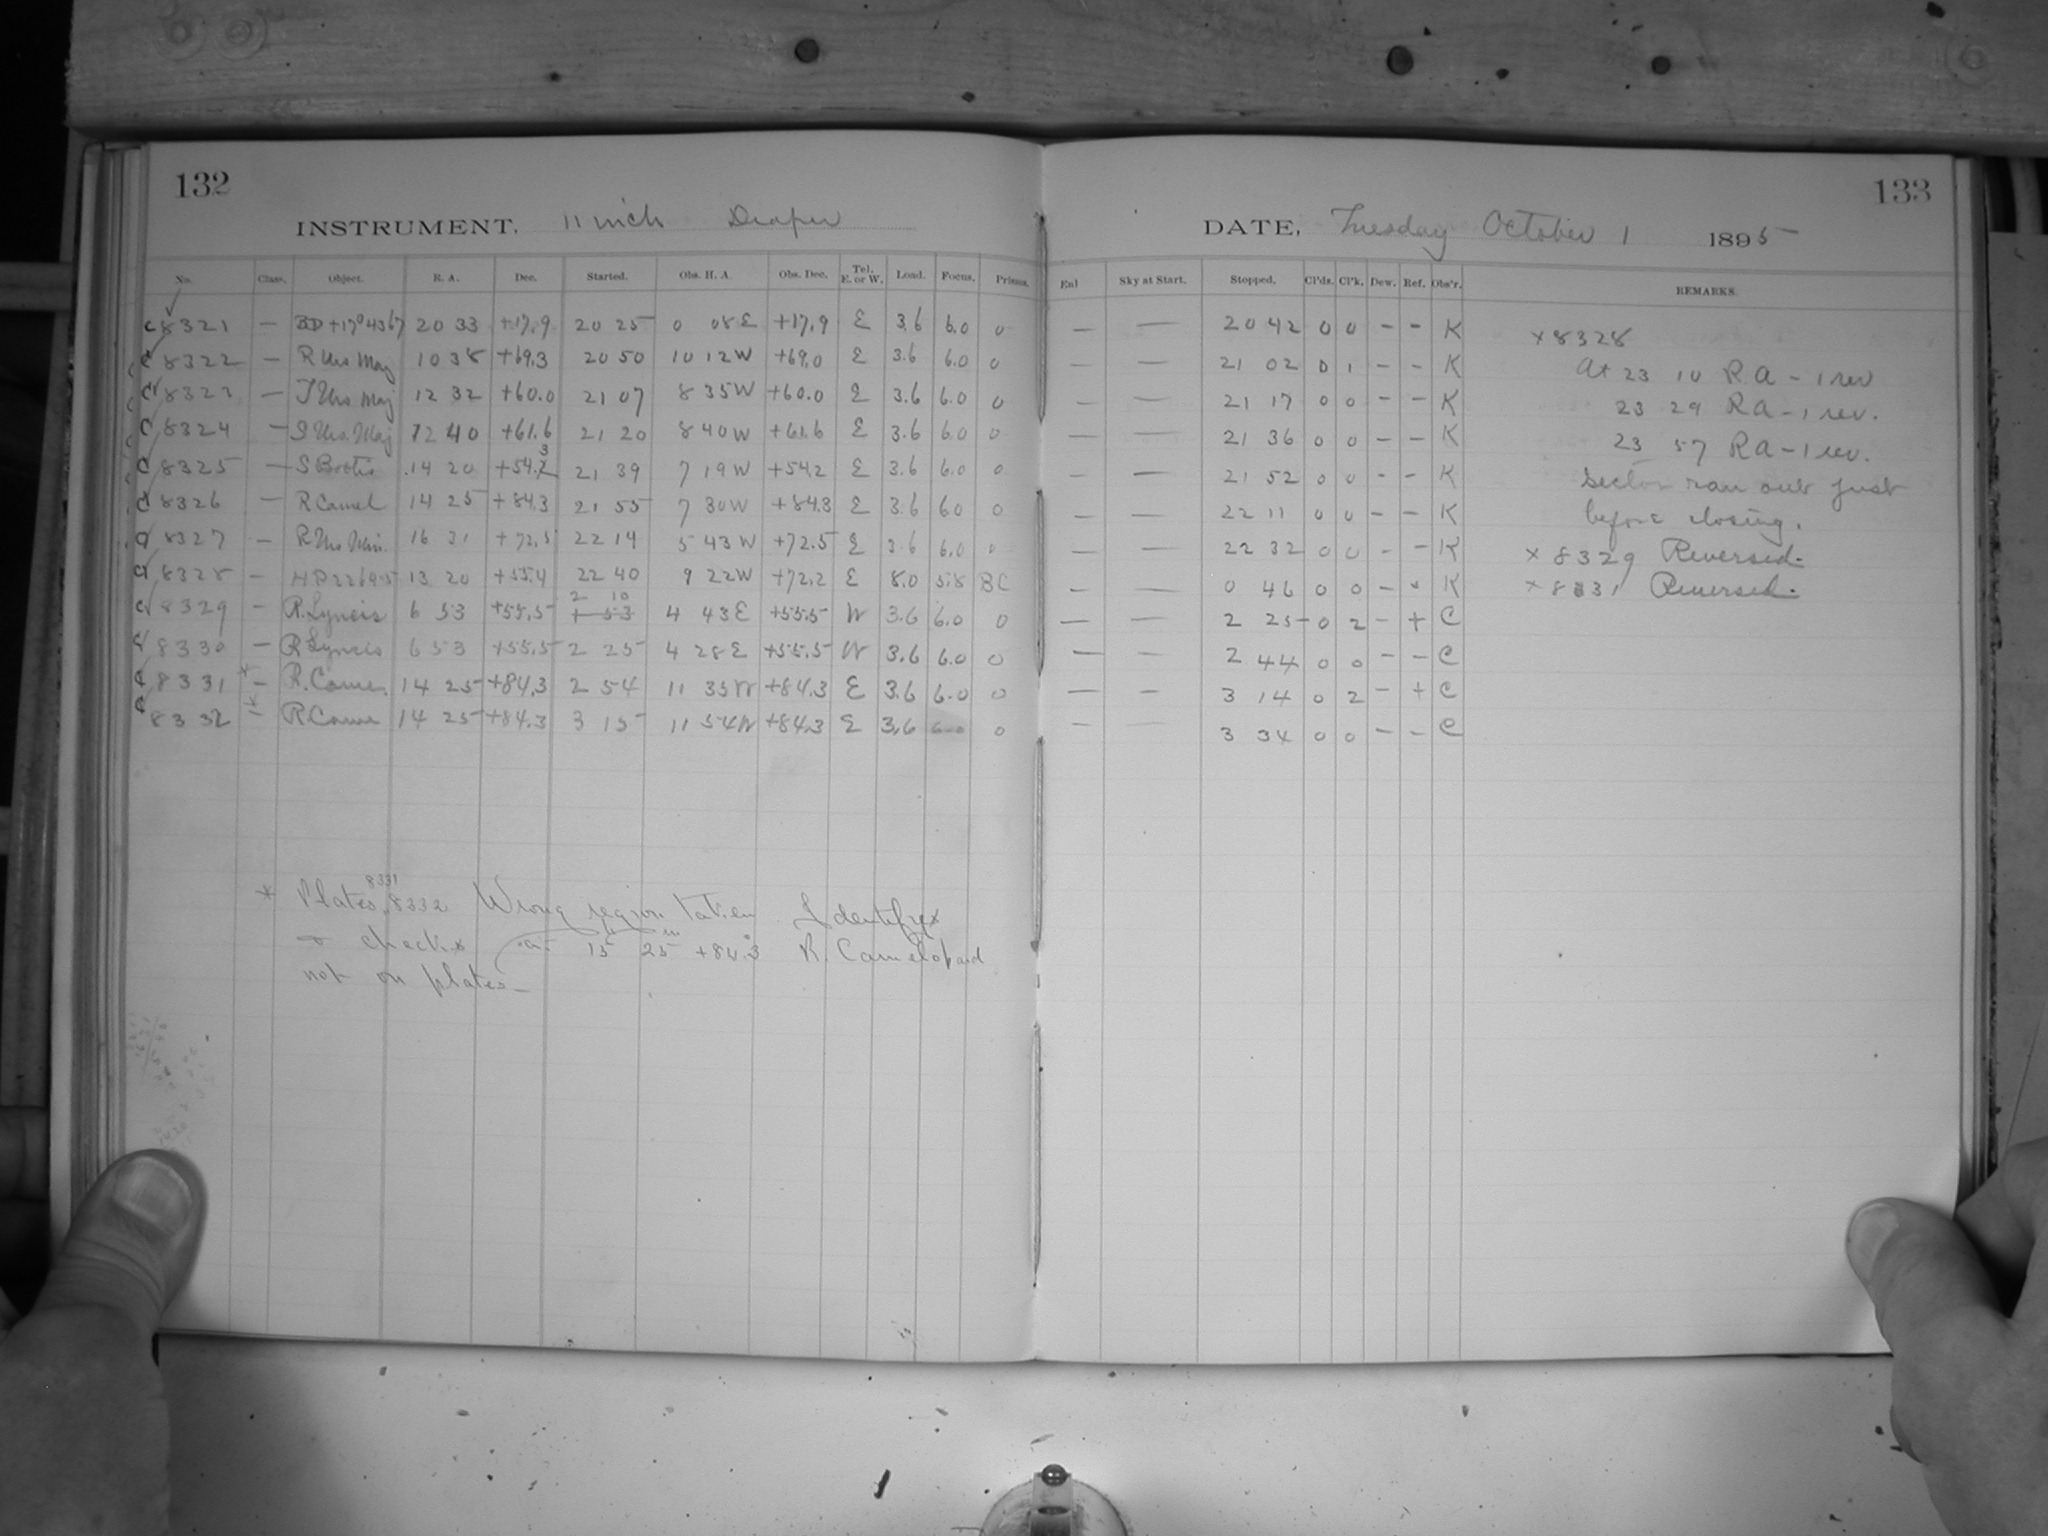 132
INSTRUMENT. 11 inch Draper
No. Class. Object. R. A. Dec. Started. Obs. H. A. Obs. Dec. Tel. E. or W. Load. Focus. Prisms.
C 8321 — BD +17°4367 20 33 +17.9 20 25 0 08 E +17.9 E 3.6 6.0 0
C 8322 — R Urs Maj 10 38 +69.3 20 50 10 12 W +69.0 E 3.6 6.0 0
C 8323 — T Urs Maj 12 32 +60.0 21 07 8 35 W +60.0 E 3.6 6.0 0
C 8324 — S Urs. Maj 12 40 +61.6 21 20 8 40 W +61.6 E 3.6 6.0 0
C 8325 — S Bootis 14 20 +54.3 21 39 7 19 W +54.2 E 3.6 6.0 0
C 8326 — R Camel 14 25 +84.3 21 55 7 30 W +84.3 E 3.6 6.0 0
C 8327 — R Urs Min. 16 31 +72.5 22 14 5 43 W +72.5 E 3.6 6.0 0
C 8328 — 13 20 +55.4 22 40 9 22 W +72.2 E 8.0 5.8 BC
C 8329 — R. Lyncis 6 53 +55.5 2 10 4 43 E +55.5 W 3.6 6.0 0
C 8330 — R Lyncis 6 53 +55.5 2 25 4 28 E +55.5 W 3.6 6.0 0
C 8331 * — R. Came. 14 25 +84.3 2 54 11 35 W +84.3 E 3.6 6.0 0
C 8332 * — R. Came 14 25 +84.3 3 15 11 54 W +84.3 E 3.6 6.0 0
* Plates 8331 8332 Wrong region taken Identifyx
checkx 15 25 +84.3 R. Camelopard
not on plates —
133
DATE. Tuesday October 1 1895
Enl Sky at Start. Stopped. Cl'ds. Cl'k. Dew. Ref. Obs'r. REMARKS.
— — 20 42 0 0 – – K
— — 21 02 0 1 – – K
— — 21 17 0 0 – – K
— — 21 36 0 0 – – K
— — 21 52 0 0 – – K
— — 22 11 0 0 – – K
— — 22 32 0 0 – – K
— — 0 46 0 0 – – K
— — 2 25 0 2 – + C
— — 2 44 0 0 – – C
— — 3 14 0 2 – + C
— — 3 34 0 0 – – C
x 8328
At 23 10 R A – 1 rev
23 29 R A – 1 rev.
23 57 R A – 1 rev.
Sector ran out just
before closing.
x 8329 Reversed.
x 8331 Reversed.